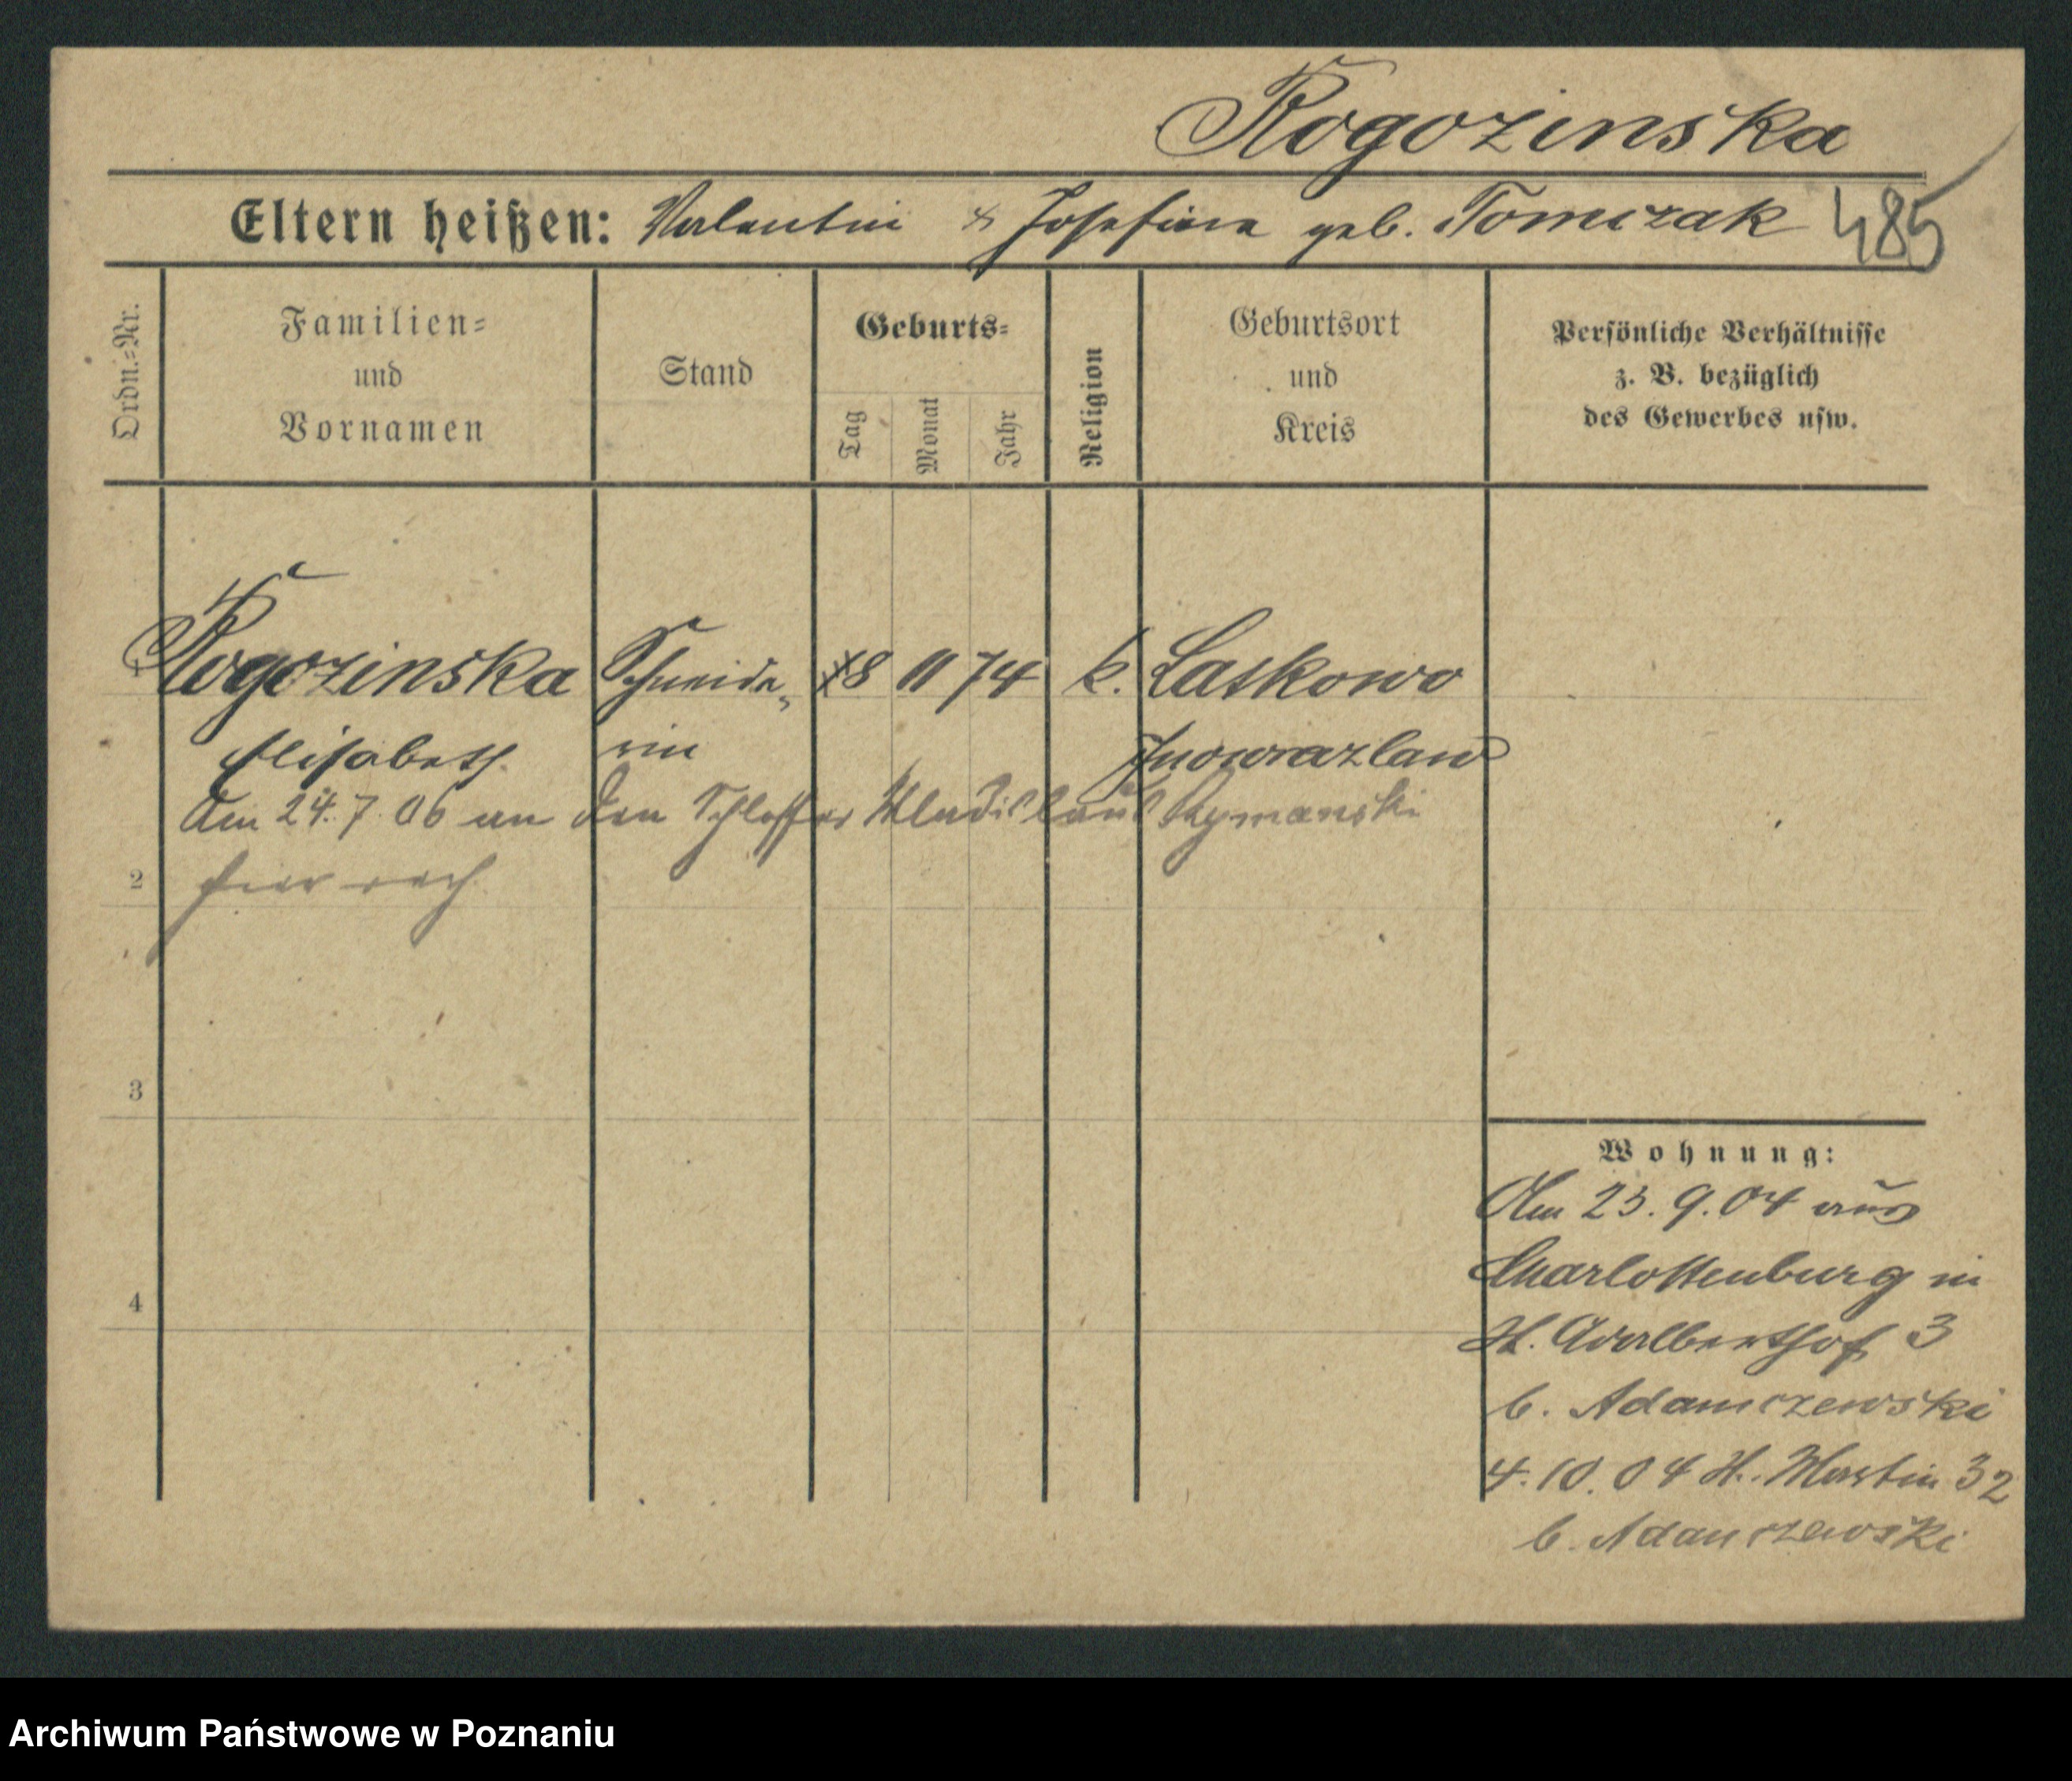 Rogozinska
Eltern heißen: Valentin & Josefina geb. Tomczak 485
Ordn.=Nr.
Familien=
und
Vornamen
Stand
Geburts=
Tag
Monat
Jahr
Religion
Geburtsort
und
Kreis
Persönliche Verhältnisse
z. B. bezüglich
des Gewerbes usw.
1 Rogozinska Schneide- 8 11 74 k. Laskowo
Elisabeth rin Inowrazlaw
Am 24.7.06 an den Schlosser Wladislaus
2 hier
3
4
Wohnung:
Am 23.9.04 aus
Charlottenburg in
St. Adalberthof 3
b. Adamczewski
4.10.04 St. Martin 32
b. Adamczewski
Archiwum Państwowe w Poznaniu